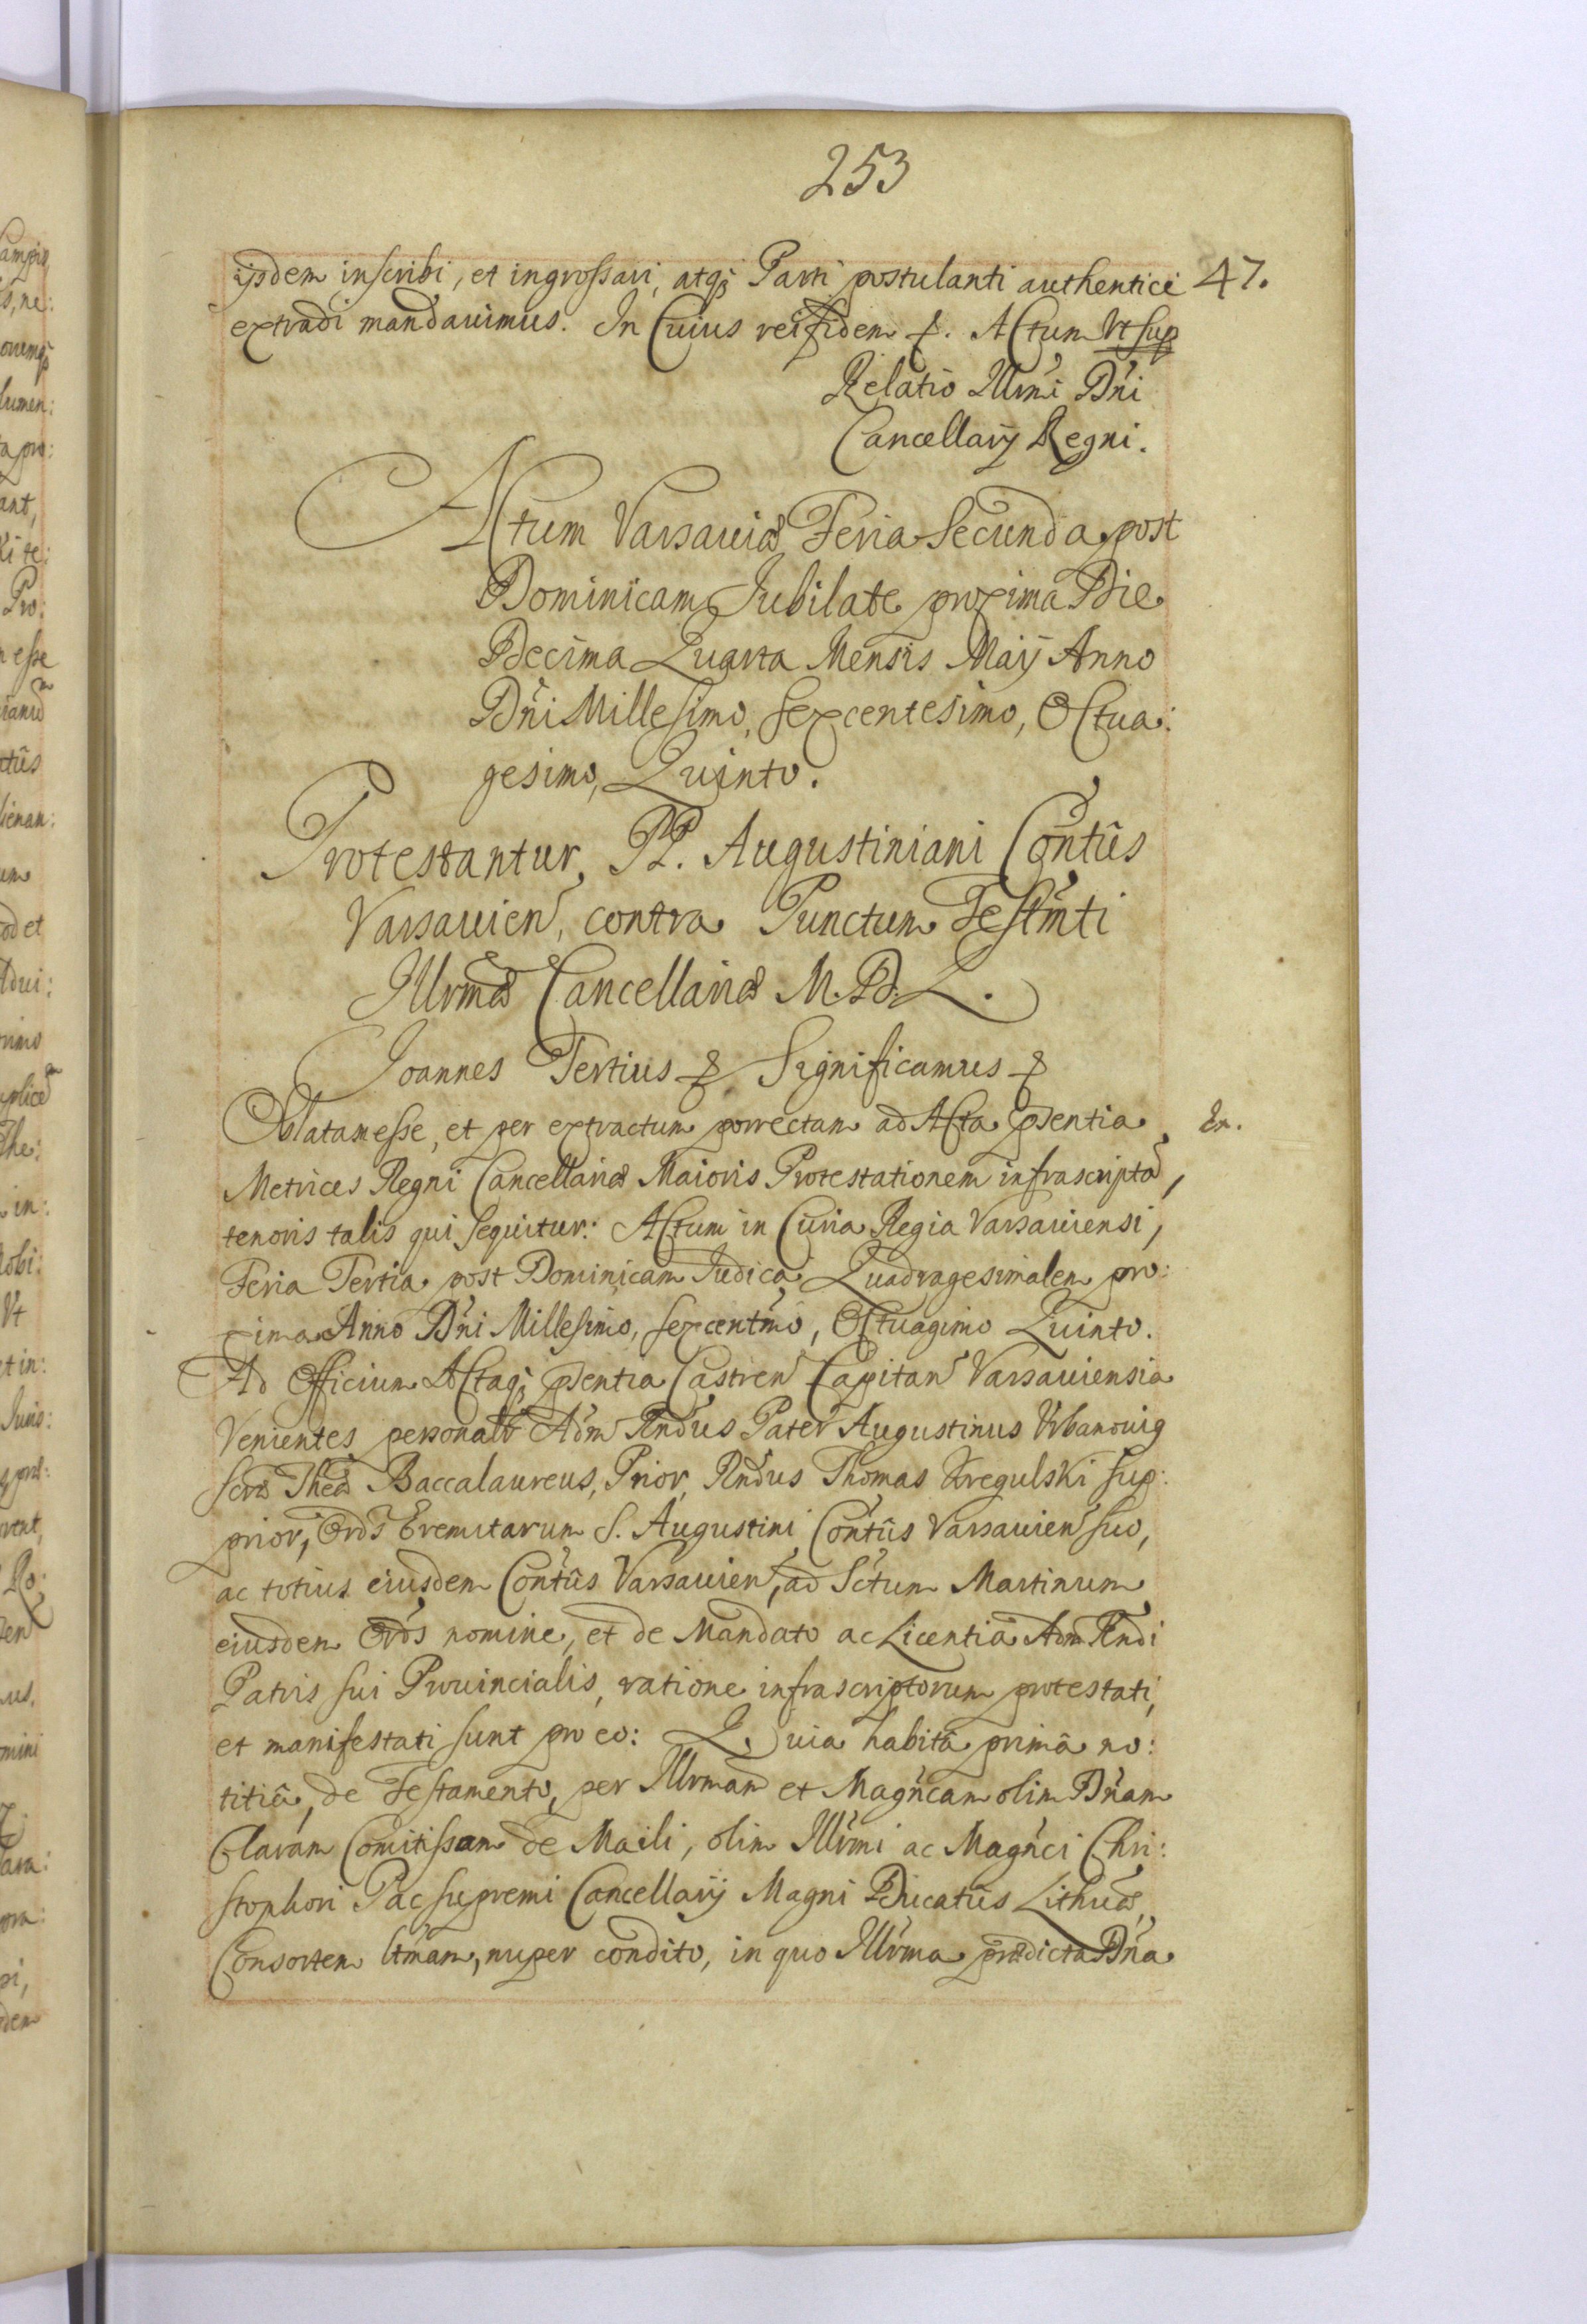 253
ijsdem inscribi, et ingrossari, atq; Parti postulanti authentice 47.
extradi mandauimus. In Cuius rei fidem &. Actum Vt sup
Relatio Illrmi Dni
Cancellarij Regni.
Actum Varsauiæ Feria Secunda post
Dominicam Jubilate proxima Die
Decima Quarta Mensis Maij Anno
Dni Millesimo, Sexcentesimo, Octua:
gesimo, Quinto.
Protestantur PP. Augustiniani Contûs
Varsauien, contra Punctum Testmti
Illrmæ Cancellariæ M. D. L.
Joannes Tertius & Significamus &
Oblatam esse, et per extractum porrectam ad Acta pñsentia
Metrices Regni Cancellariæ Maioris Protestationem infrascriptã,
tenoris talis qui sequitur: Actum in Curia Regia Varsauiensi,
Feria Tertia post Dominicam Judica Quadragesimalem pro:
xima Anno Dni Millesimo, sexcentmo, Octuagimo Quinto.
Ad Officium Actaq; pñsentia Castren Capitan Varsauiensia
Venientes personalr Adm Rndus Pater Augustinus Vrbanouig
Scræ Theæ Baccalaureus, Prior, Rndus Thomas Kregulski sup:
prior, Ords Eremitarum S. Augustini Contûs Varsauien suo,
ac totius eiusdem Contûs Varsauien, ad Sctum Martinum
eiusdem Ords nomine, et de Mandato ac Licentia Adm Rndi
Patris sui Prouincialis, ratione infrascriptorum protestati,
et manifestati sunt pro eo: Quia habitâ primâ no:
titiâ, de Testamento, per Illrmam et Magncam olim Dnam
Claram Comitissam de Maili, olim Illrmi ac Magnci Chri:
stophori Pac supremi Cancellarij Magni Ducatûs Lithuæ,
Consortem ltmam, nuper condito, in quo Illrma prædicta Dna